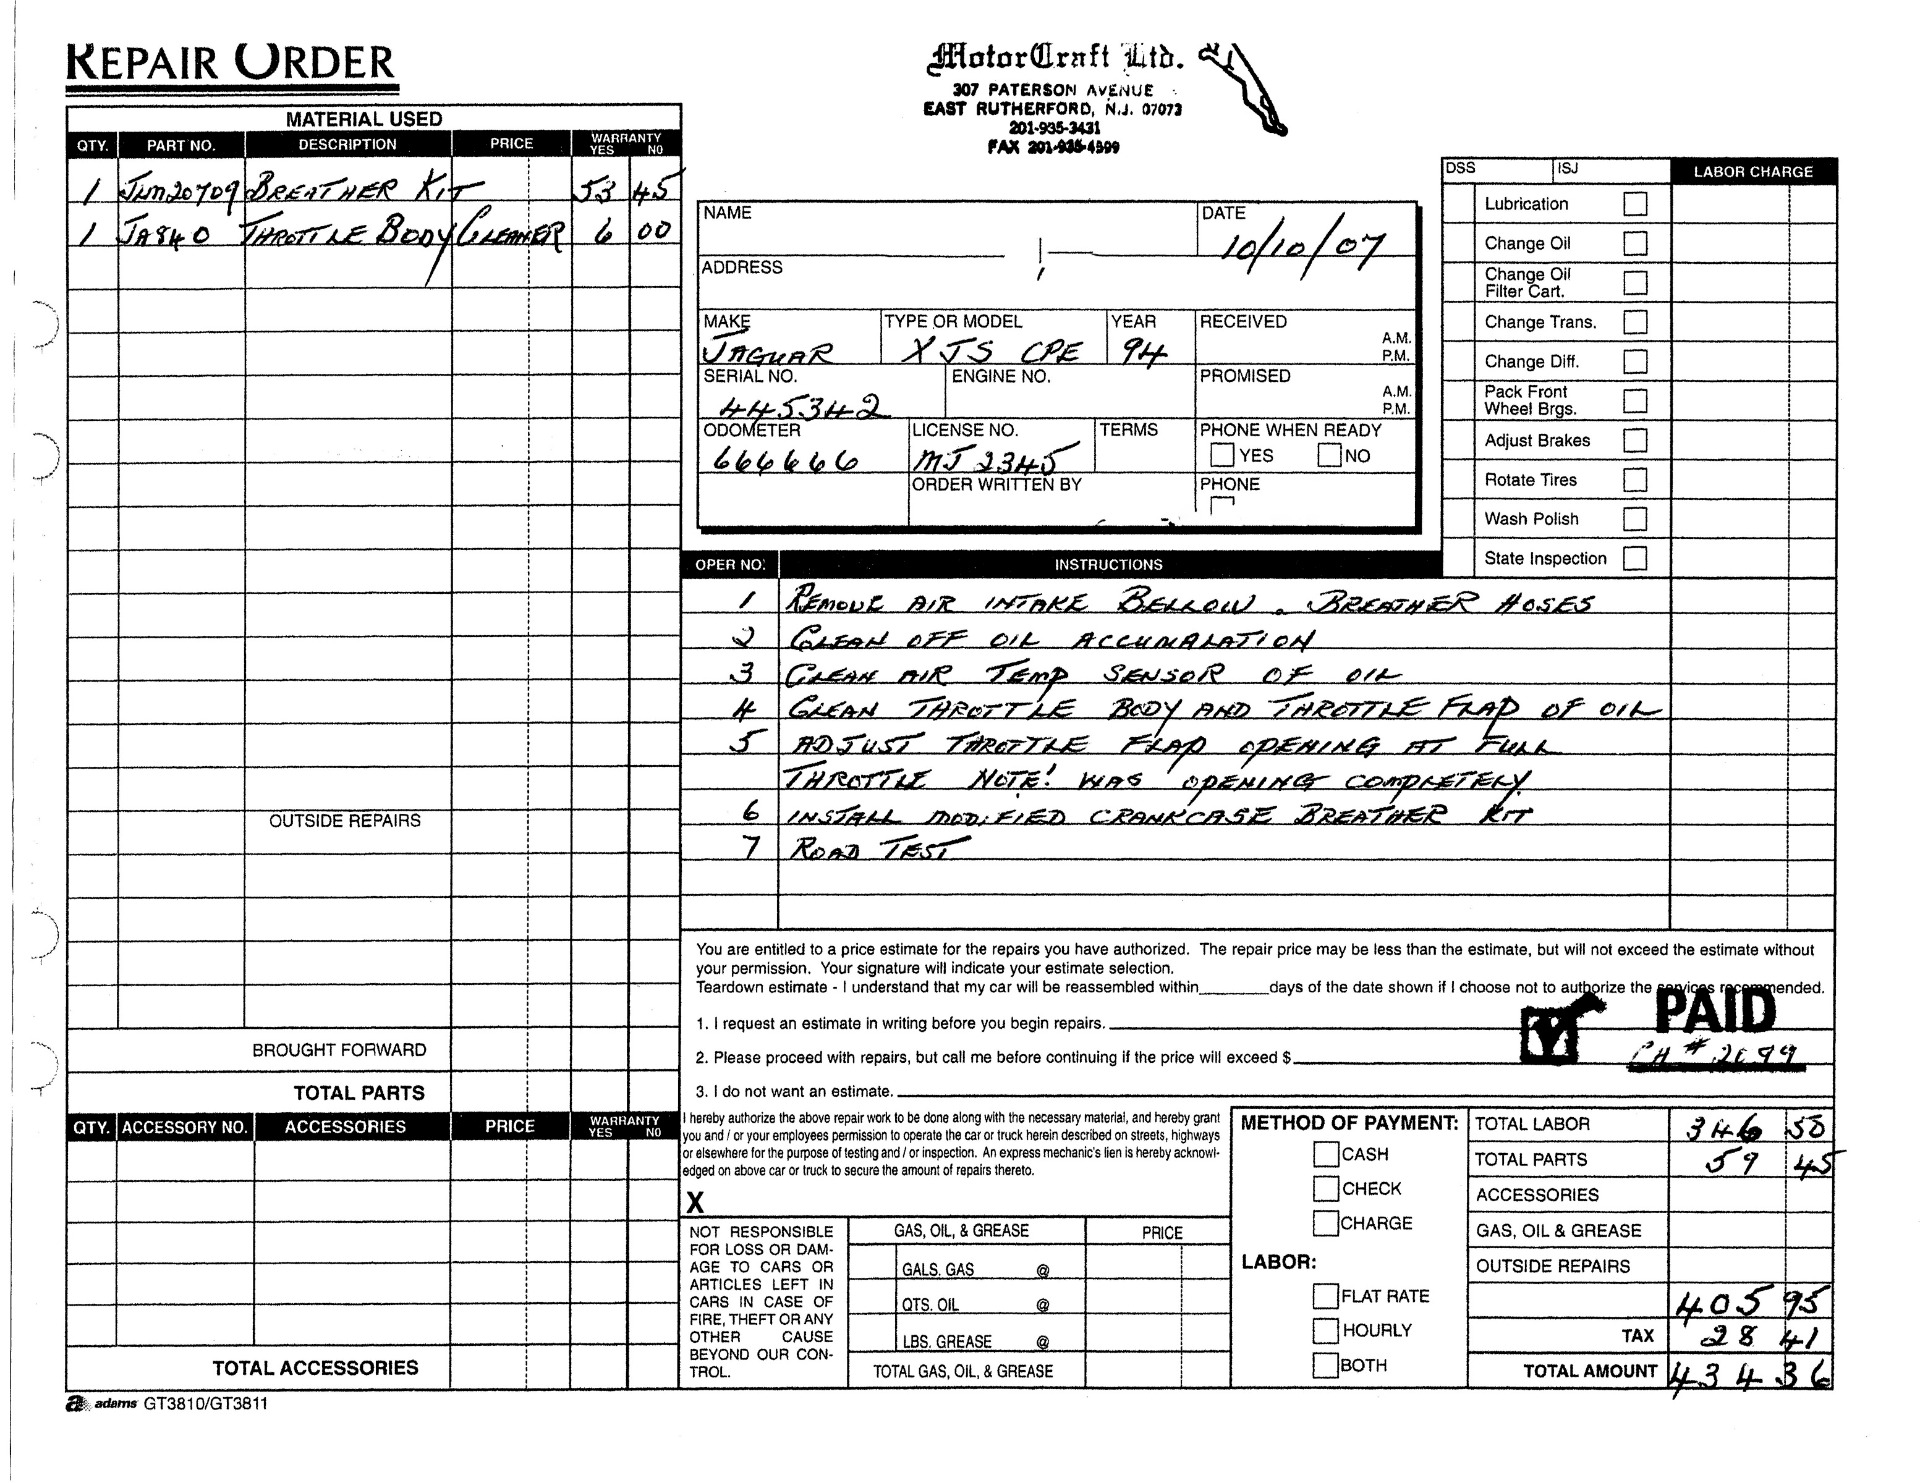 REPAIR ORDER
MotorCraft Ltd.
307 PATERSON AVENUE
EAST RUTHERFORD, N.J. 07073
201-935-3431
FAX 201-935-4599
MATERIAL USED
QTY. PART NO. DESCRIPTION PRICE WARRANTY YES NO
1 JLM20709 BREATHER KIT 53 45
1 JA840 THROTTLE BODY CLEANER 6 00
OUTSIDE REPAIRS
BROUGHT FORWARD
TOTAL PARTS
QTY. ACCESSORY NO. ACCESSORIES PRICE WARRANTY YES NO
TOTAL ACCESSORIES
adams GT3810/GT3811
NAME DATE
10/10/07
ADDRESS
MAKE TYPE OR MODEL YEAR RECEIVED A.M. P.M.
JAGUAR XJS CPE 94
SERIAL NO. ENGINE NO. PROMISED A.M. P.M.
445342
ODOMETER LICENSE NO. TERMS PHONE WHEN READY
666666 MJ 2345 YES NO
ORDER WRITTEN BY PHONE
DSS ISJ LABOR CHARGE
Lubrication
Change Oil
Change Oil
Filter Cart.
Change Trans.
Change Diff.
Pack Front
Wheel Brgs.
Adjust Brakes
Rotate Tires
Wash Polish
State Inspection
OPER NO. INSTRUCTIONS
1 REMOVE AIR INTAKE BELLOW . BREATHER HOSES
2 CLEAN OFF OIL ACCUMALATION
3 CLEAN AIR TEMP SENSOR OF OIL
4 CLEAN THROTTLE BODY AND THROTTLE FLAP OF OIL
5 ADJUST THROTTLE FLAP OPENING AT FULL
THROTTLE NOTE! WAS OPENING COMPLETELY
6 INSTALL MODIFIED CRANKCASE BREATHER KIT
7 ROAD TEST
You are entitled to a price estimate for the repairs you have authorized. The repair price may be less than the estimate, but will not exceed the estimate without
your permission. Your signature will indicate your estimate selection.
Teardown estimate - I understand that my car will be reassembled within________days of the date shown if I choose not to authorize the services recommended.
1. I request an estimate in writing before you begin repairs.
2. Please proceed with repairs, but call me before continuing if the price will exceed $
3. I do not want an estimate.
PAID
CH # 2099
I hereby authorize the above repair work to be done along with the necessary material, and hereby grant
you and / or your employees permission to operate the car or truck herein described on streets, highways
or elsewhere for the purpose of testing and / or inspection. An express mechanic's lien is hereby acknowl-
edged on above car or truck to secure the amount of repairs thereto.
X
NOT RESPONSIBLE
FOR LOSS OR DAM-
AGE TO CARS OR
ARTICLES LEFT IN
CARS IN CASE OF
FIRE, THEFT OR ANY
OTHER CAUSE
BEYOND OUR CON-
TROL.
GAS, OIL, & GREASE PRICE
GALS. GAS @
QTS. OIL @
LBS. GREASE @
TOTAL GAS, OIL, & GREASE
METHOD OF PAYMENT:
CASH
CHECK
CHARGE
LABOR:
FLAT RATE
HOURLY
BOTH
TOTAL LABOR 346 50
TOTAL PARTS 59 45
ACCESSORIES
GAS, OIL & GREASE
OUTSIDE REPAIRS
405 95
TAX 28 41
TOTAL AMOUNT 434 36